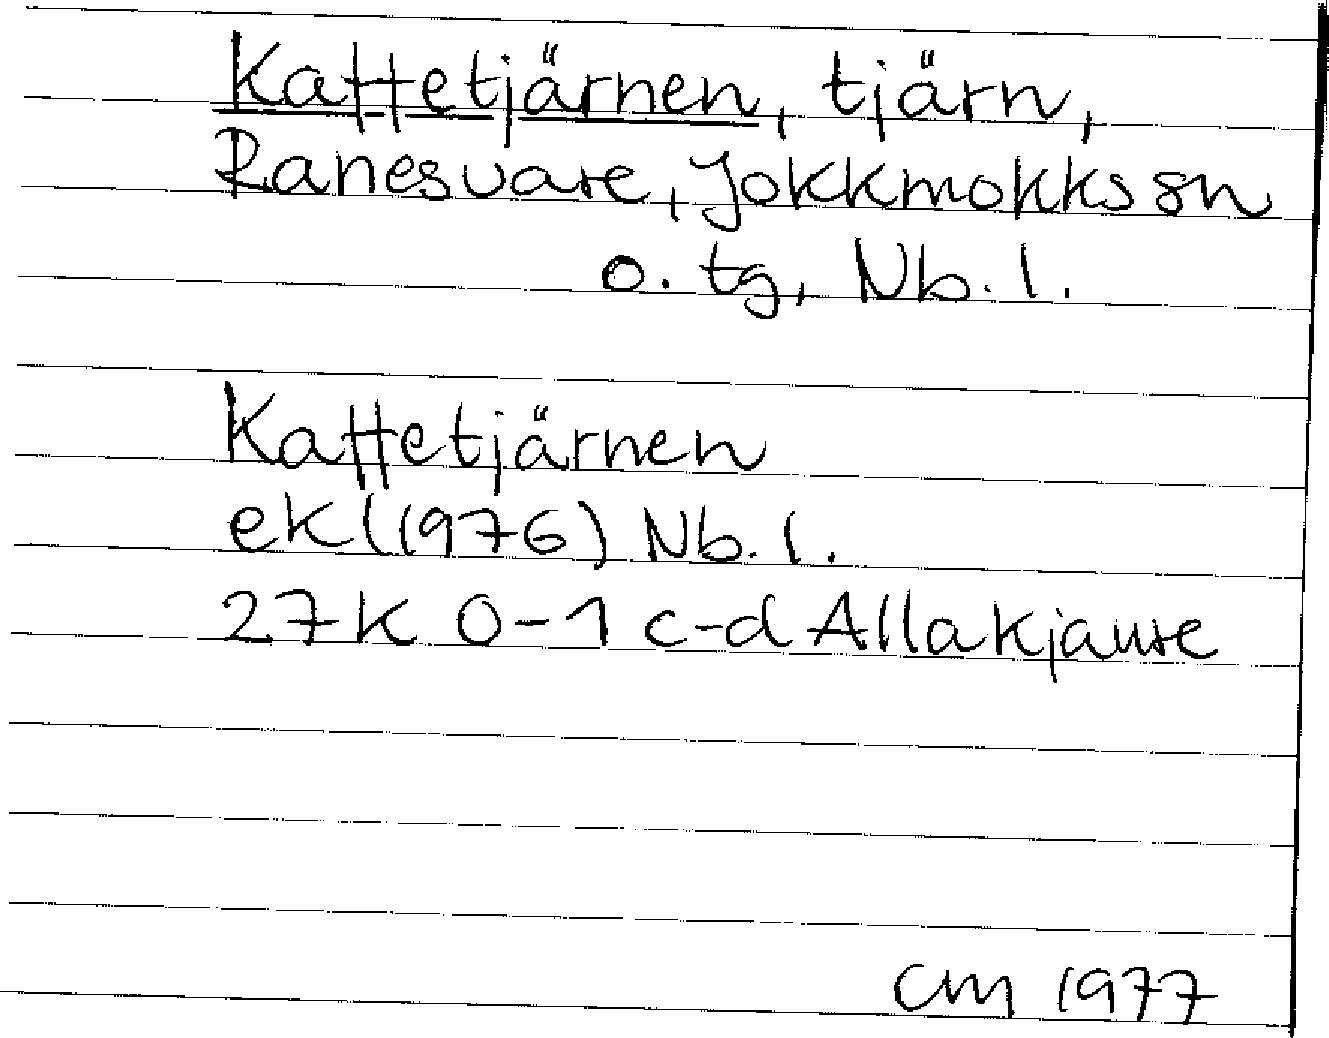 Kaffetjärnen, tjärn,
Ranesvare, Jokkmokks sn
o. tg, Nb. l.
Kaffetjärnen
ek (1976) Nb. l.
27K 0-1 c-d Allakjaure
CM 1977